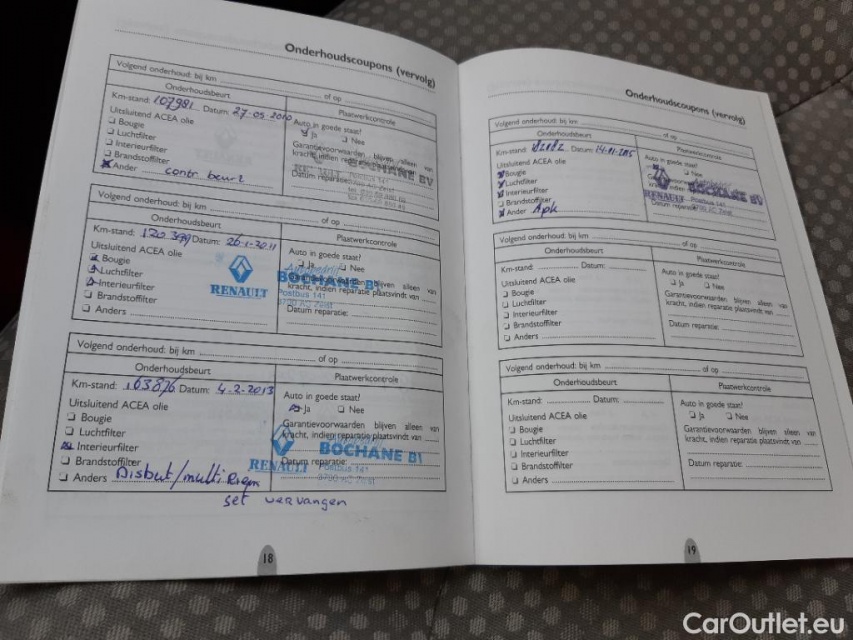 Onderhoudscoupons (vervolg)
Volgend onderhoud: bij km of op
Onderhoudsbeurt Plaatwerkcontrole
Km-stand: 107981 Datum: 27-05-2010
Auto in goede staat?
Uitsluitend ACEA olie
Ja Nee
Bougie
Garantievoorwaarden blijven alleen van
Luchtfilter
kracht, indien
Interieurfilter
Brandstoffilter
Ander contr. beurt
BOCHANE BV
Postbus 141
Volgend onderhoud: bij km of op
Onderhoudsbeurt Plaatwerkcontrole
Km-stand: Datum: 26-1-2011
Auto in goede staat?
Uitsluitend ACEA olie
Ja Nee
Bougie
Luchtfilter
Interieurfilter
Brandstoffilter
Anders
Datum reparatie:
RENAULT
BOCHANE
Postbus 141
3700 AC Zeist
Volgend onderhoud: bij km of op
Onderhoudsbeurt Plaatwerkcontrole
Km-stand: 163876 Datum: 4-2-2013
Auto in goede staat?
Uitsluitend ACEA olie
Ja Nee
Bougie
Garantievoorwaarden blijven alleen van
Luchtfilter
kracht, indien reparatie plaatsvindt van
Interieurfilter
Brandstoffilter
Datum reparatie:
Anders Disbut/multi Riem
set vervangen
RENAULT
BOCHANE
Postbus 141
3700 AC Zeist
18
Onderhoudscoupons (vervolg)
Volgend onderhoud: bij km of op
Onderhoudsbeurt Plaatwerkcontrole
Km-stand: Datum:
Auto in goede staat?
Uitsluitend ACEA olie
Ja Nee
Bougie
Garantievoorwaarden blijven alleen van
Luchtfilter
Interieurfilter
Brandstoffilter
Datum reparatie
Ander Apk
Postbus 141
Volgend onderhoud: bij km of op
Onderhoudsbeurt Plaatwerkcontrole
Km-stand: Datum:
Auto in goede staat?
Uitsluitend ACEA olie
Ja Nee
Bougie
Garantievoorwaarden blijven alleen van
Luchtfilter
kracht, indien reparatie plaatsvindt van
Interieurfilter
Brandstoffilter
Datum reparatie:
Anders
Volgend onderhoud: bij km of op
Onderhoudsbeurt Plaatwerkcontrole
Km-stand: Datum:
Auto in goede staat?
Uitsluitend ACEA olie
Ja Nee
Bougie
Garantievoorwaarden blijven alleen van
Luchtfilter
kracht, indien reparatie plaatsvindt van
Interieurfilter
Brandstoffilter
Datum reparatie:
Anders
19
CarOutlet.eu